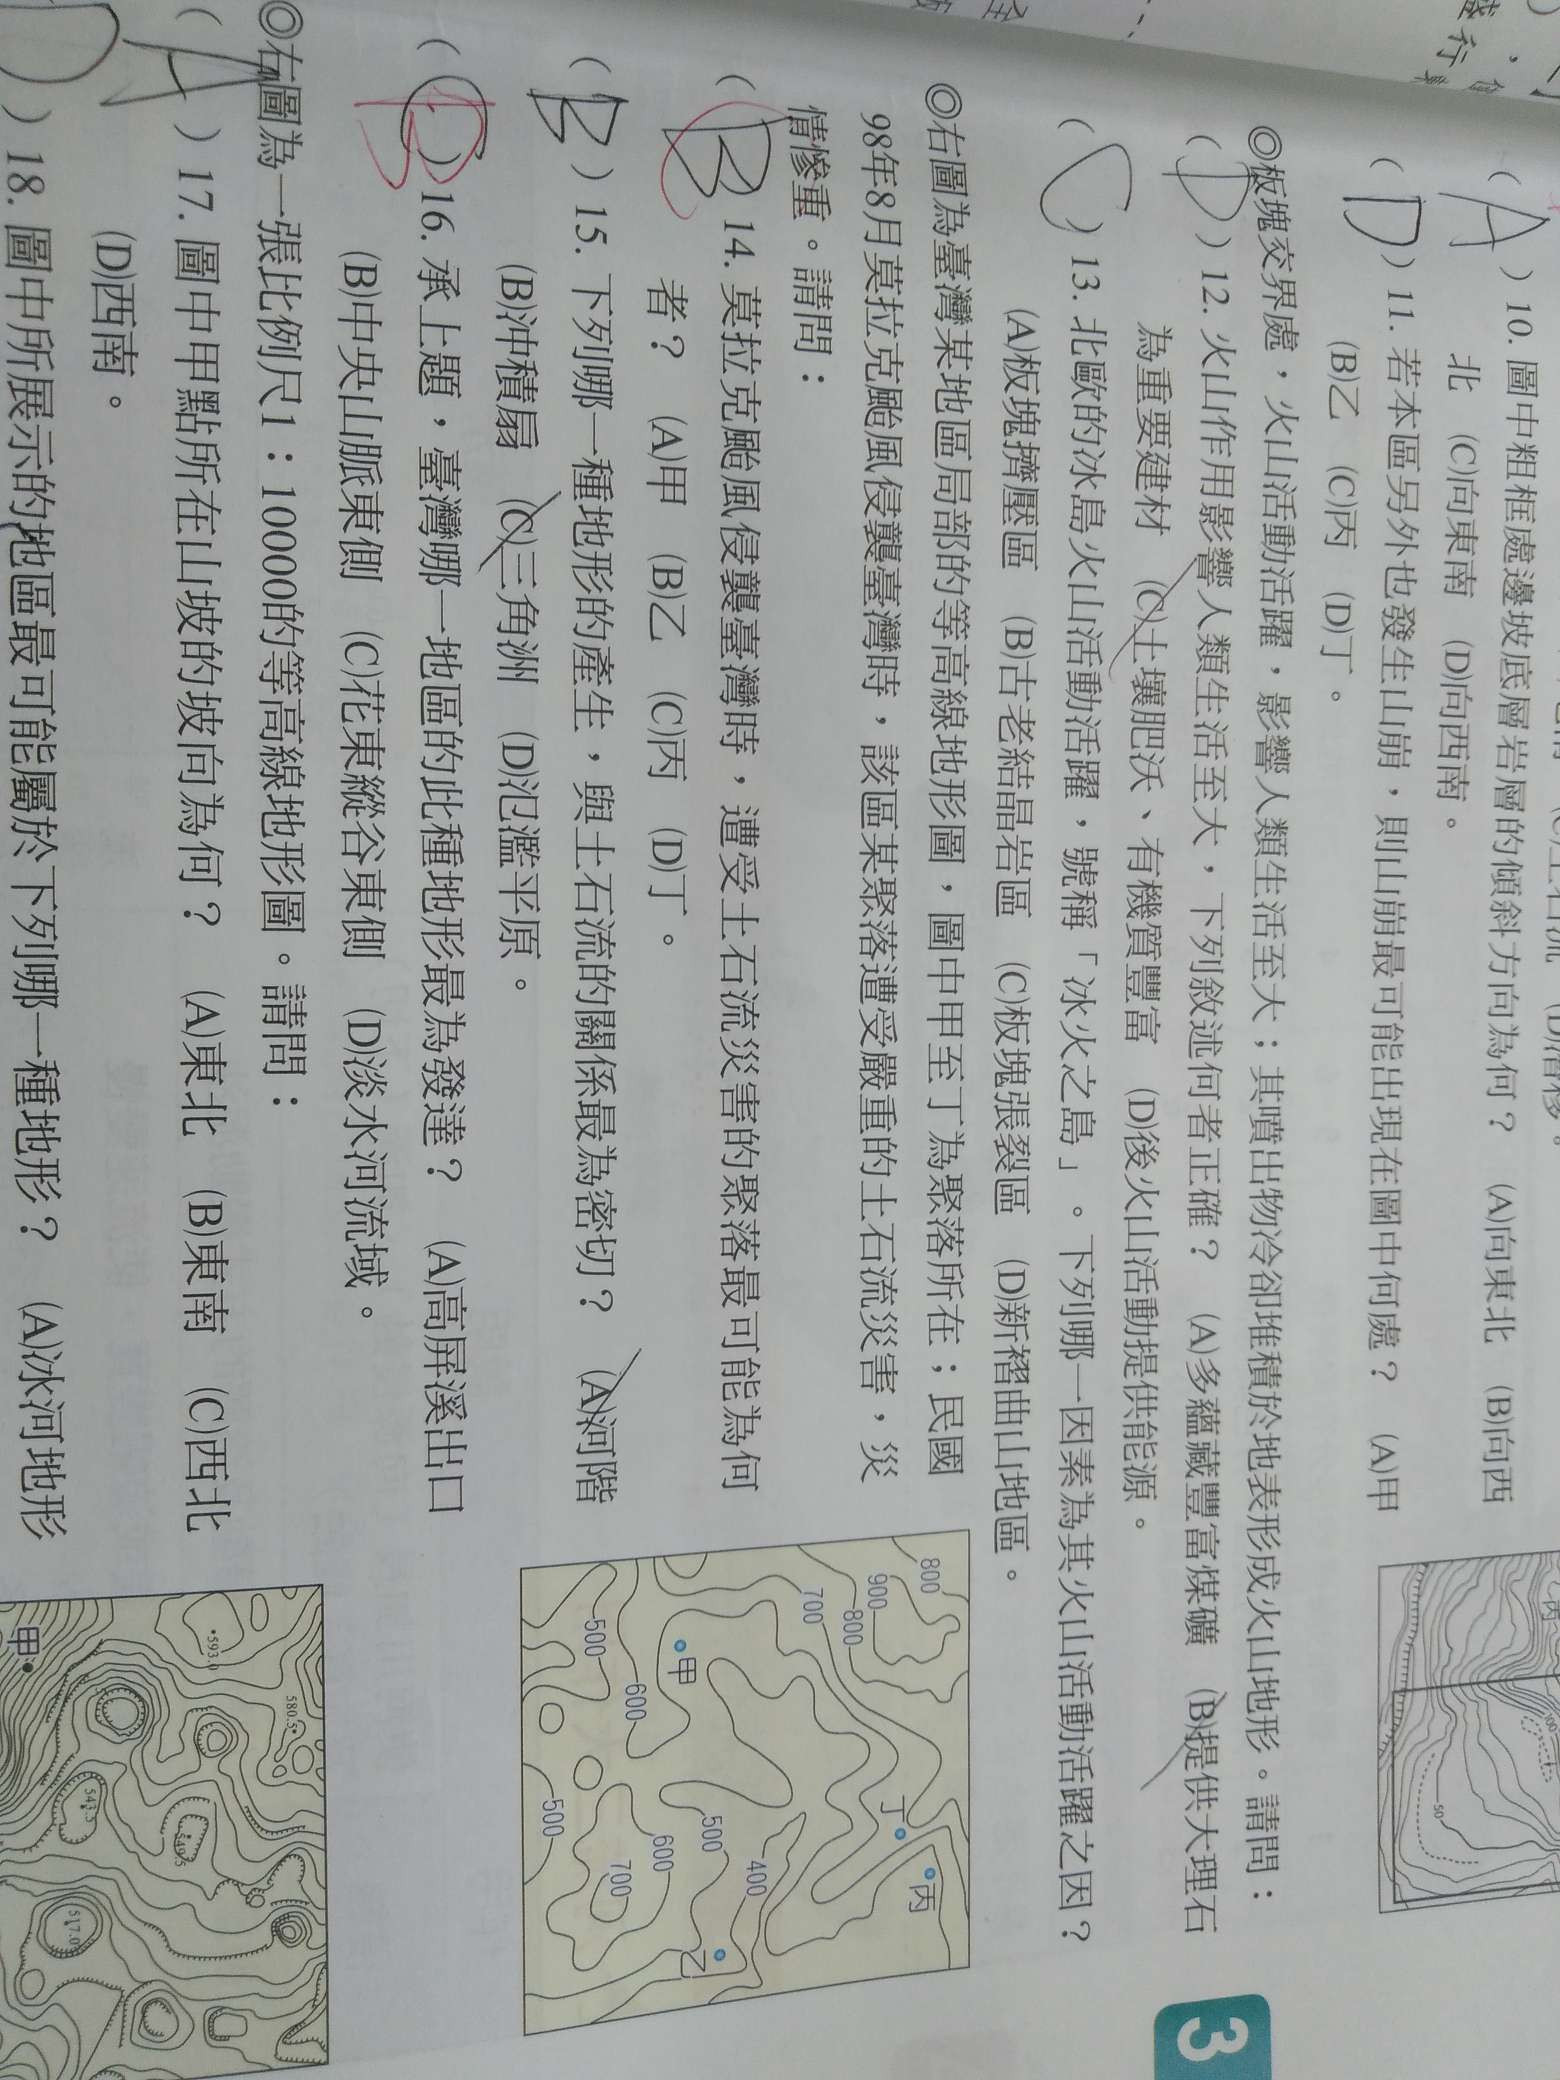 (A) 10. 圖中粗框處邊坡底層岩層的傾斜方向為何？ (A)向東北 (B)向西
北 (C)向東南 (D)向西南。
(D) 11. 若本區另外也發生山崩，則山崩最可能出現在圖中何處？ (A)甲
(B)乙 (C)丙 (D)丁。
◎板塊交界處，火山活動活躍，影響人類生活至大；其噴出物冷卻堆積於地表形成火山地形。請問：
(D) 12. 火山作用影響人類生活至大，下列敘述何者正確？ (A)多蘊藏豐富煤礦 (B)提供大理石
為重要建材 (C)土壤肥沃、有機質豐富 (D)後火山活動提供能源。
(C) 13. 北歐的冰島火山活動活躍，號稱「冰火之島」。下列哪一因素為其火山活動活躍之因？
(A)板塊擠壓區 (B)古老結晶岩區 (C)板塊張裂區 (D)新褶曲山地區。
◎右圖為臺灣某地區局部的等高線地形圖，圖中甲至丁為聚落所在；民國
98年8月莫拉克颱風侵襲臺灣時，該區某聚落遭受嚴重的土石流災害，災
情慘重。請問：
(B) 14. 莫拉克颱風侵襲臺灣時，遭受土石流災害的聚落最可能為何
者？ (A)甲 (B)乙 (C)丙 (D)丁。
(B) 15. 下列哪一種地形的產生，與土石流的關係最為密切？ (A)河階
(B)沖積扇 (C)三角洲 (D)氾濫平原。
16. 承上題，臺灣哪一地區的此種地形最為發達？ (A)高屏溪出口
(B)中央山脈東側 (C)花東縱谷東側 (D)淡水河流域。
◎右圖為一張比例尺1：10000的等高線地形圖。請問：
(A) 17. 圖中甲點所在山坡的坡向為何？ (A)東北 (B)東南 (C)西北
(D)西南。
(D) 18. 圖中所展示的地區最可能屬於下列哪一種地形？ (A)冰河地形
丙
100
50
800
900
800
700
丁
丙
甲
600
500
500
400
乙
600
700
500
580.5
593.0
甲
543.5
549.5
517.0
3